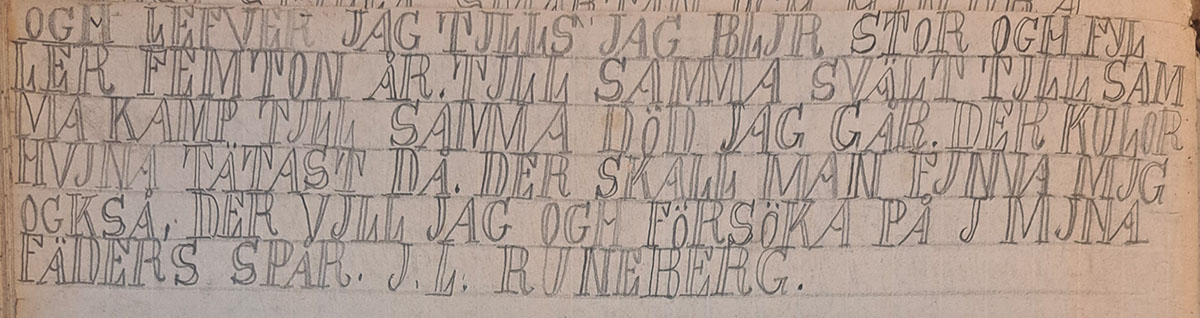 OGH LEFVER JAG TJLLS JAG BLJR STOR OGH FYL
LER FEMTON ÅR. TJLL SAMMA SVÄLT TJLL SAM
MA KAMP TJLL SAMMA DÖD JAG GÅR. DER KULOR
HVJNA TÄTAST DÅ. DER SKALL MAN FJNNA MJG
OGKSÅ, DER VJLL JAG OGH FÖRSÖKA PÅ J MJNA
FÄDERS SPÅR. J. L. RUNEBERG.